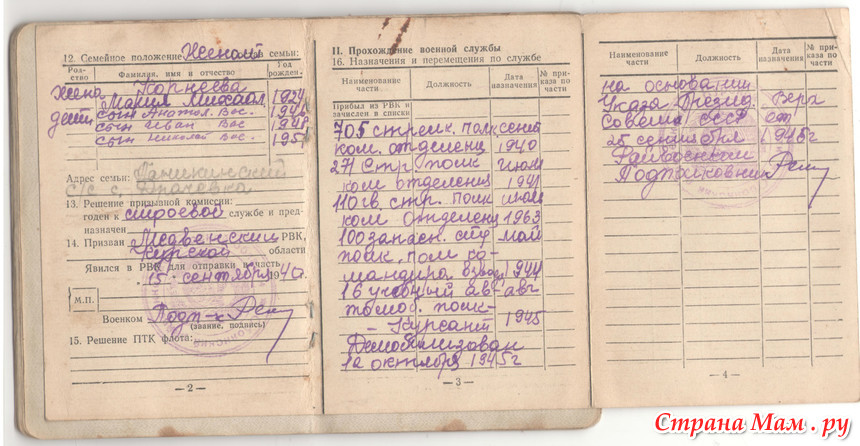 12. Семейное положение Женат
семьи:
Род-ство
Фамилия, имя и отчество
Год рожден.
жена Корнеева
Мария Михайл 1924
дети сын Анатол. Вас.
сын Иван Вас 1948
сын Николай Вас 1951
Адрес семьи:
с/с с.
13. Решение призывной комиссии:
годен к строевой службе и пред-
назначен
14. Призван Медвенским РВК,
Курской области
Явился в РВК для отправки в часть
15 сентября 1940г.
М.П.
Военком Подп-к
(звание, подпись)
15. Решение ПТК флота:
— 2 —
II. Прохождение военной службы
16. Назначения и перемещения по службе
Наименование части
Должность
Дата назначения
№ при-каза по части
Прибыл из РВК и
зачислен в списки
705 стрелк. полк сент
ком. отделения 1940
271 Стр полк июль
ком отделения 1941
110 гв. стр. полк июль
ком отделения 1963
100 запасн. стр май
полк, пом ко-
мандира взвод 1944
16 учебный авт- авг
томоб. полк-
— Курсант 1945
Демобилизован
12 октября 1945г
— 3 —
Наименование части
Должность
Дата назначения
№ при-каза по части
на основании
Указа Презид. Верх
Совета СССР от
25 сентября 1945г
Райвоенком
Подполковник
— 4 —
Страна Мам.ру